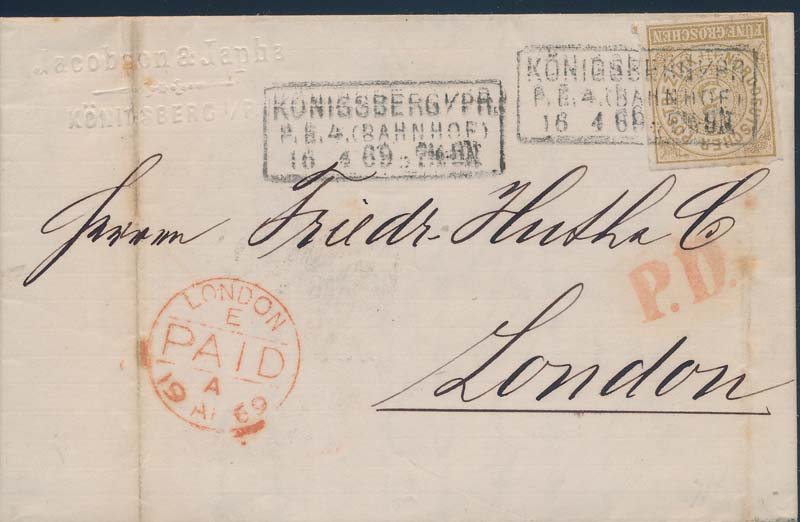 Jacobson & Japha
KÖNIGSBERG I/PR.
KÖNIGSBERG I/PR.
P.E.4.(BAHNHOF)
16 4 69
KÖNIGSBERG I/PR.
P.E.4.(BAHNHOF)
16 4 69
FÜNF GROSCHEN
NORDDEUTSCHER
Herrn Friedr. Huth & C
P.D.
London
LONDON
E
PAID
A
19 AP 69